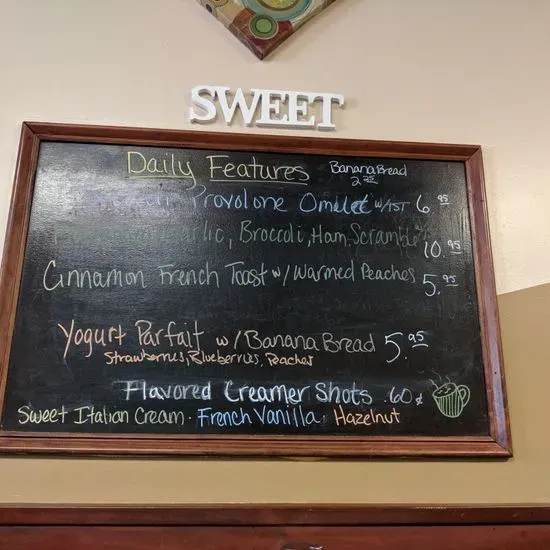 SWEET
Daily Features
Banana Bread
2.25
Provolone Omlet w/ AST 6.95
Garlic, Broccoli, Ham, Scramble 10.95
Cinnamon French Toast w/ Warmed Peaches 5.95
Yogurt Parfait w/ Banana Bread 5.95
Strawberries, Blueberries, Peaches
Flavored Creamer Shots .60¢
Sweet Italian Cream · French Vanilla · Hazelnut